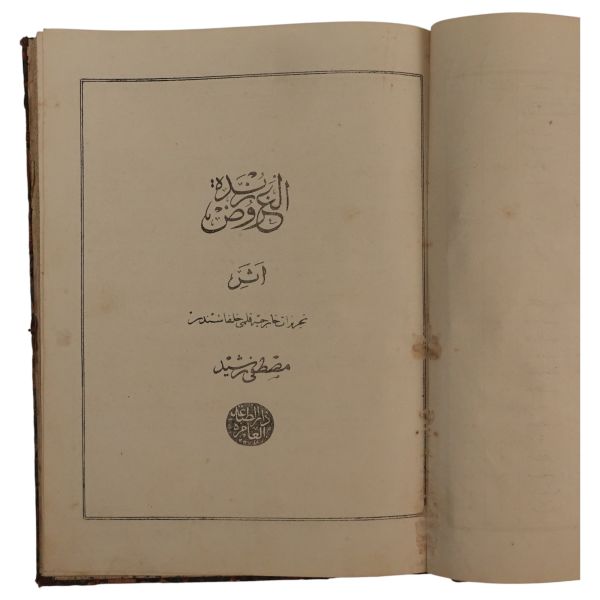 زبدة العروض
اثر
تحريرات خارجيه قلمى خلفاسندن
مصطفى رشيد
دار الطباعة العامره